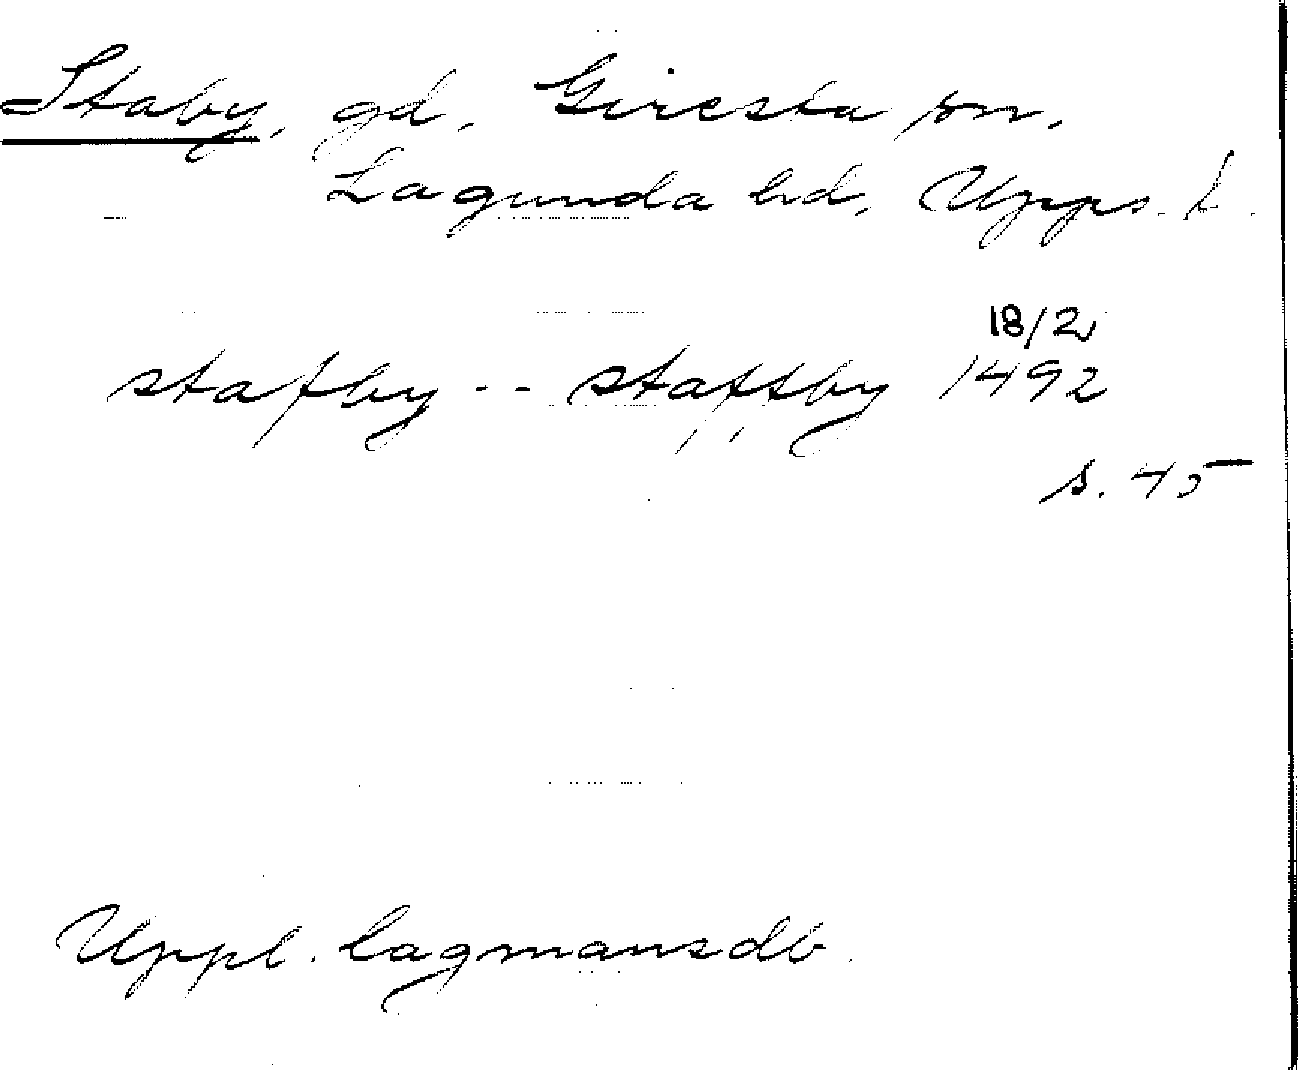 Staby, gd, Giresta sn,
Lagunda hd, Upps. l.
18/2
stafby -- staffby 1492
s. 45
Uppl. lagmansdb.